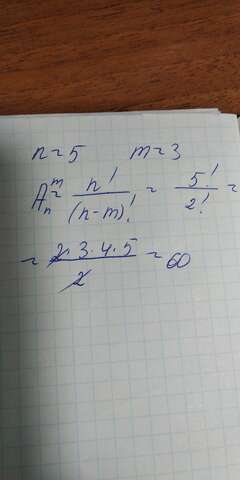 n = 5 m = 3
Aₙᵐ = n! / (n-m)! = 5! / 2! =
= 2·3·4·5 / 2 = 60